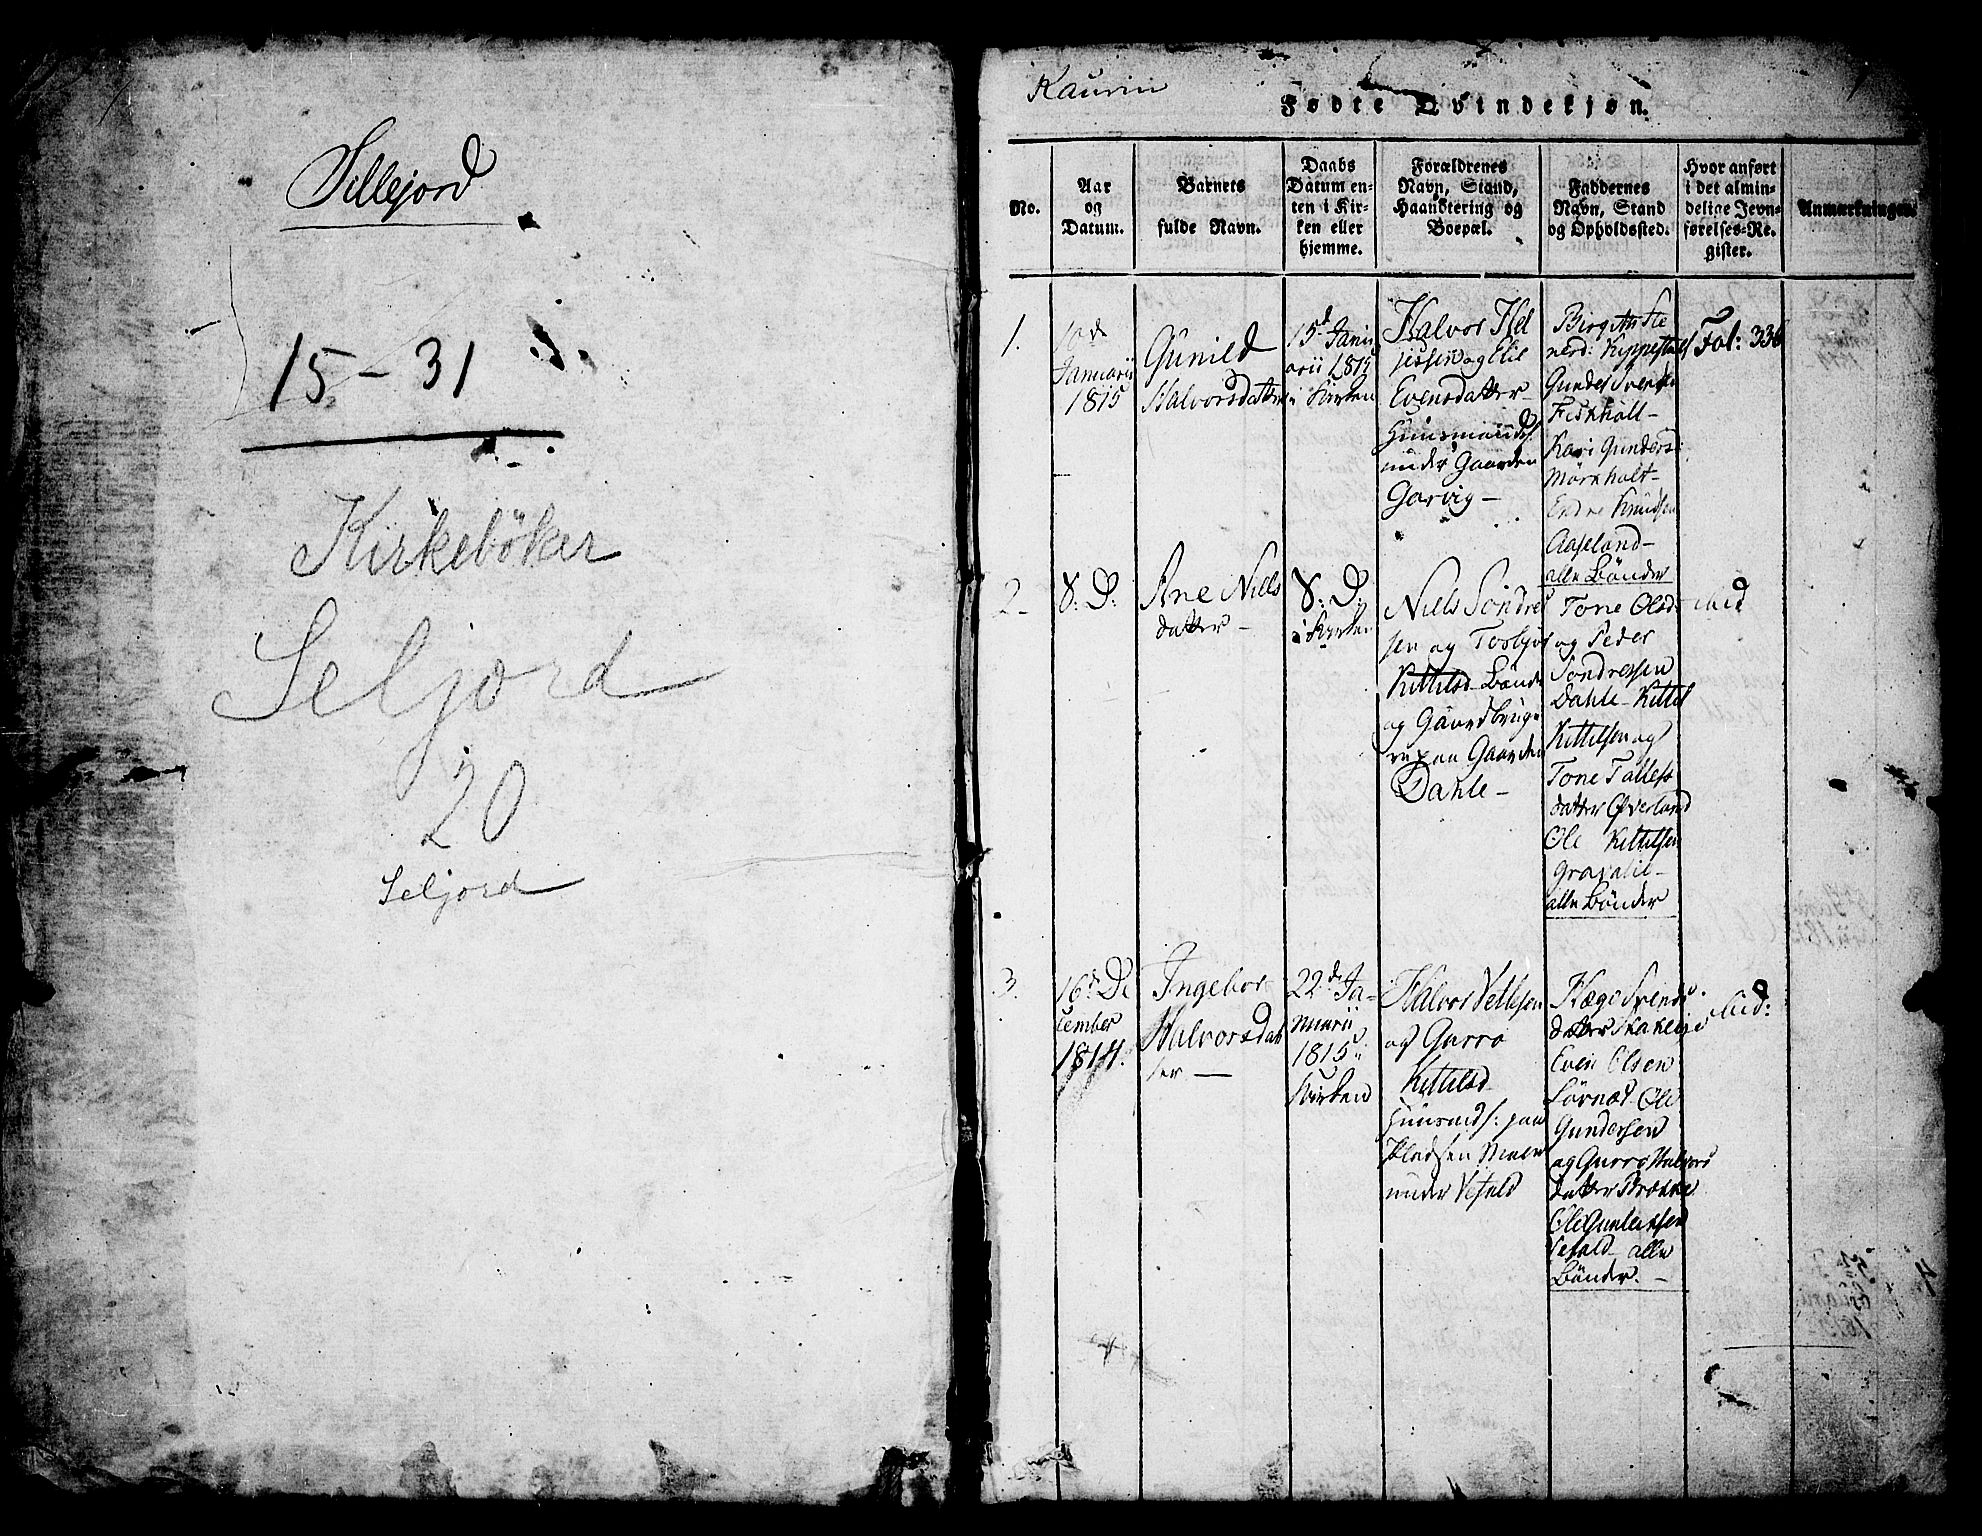 Sillejord
15 - 31
Kirkeböker
Seljord
20
Seljord
Kaurin
Fødte Qvindekjøn.
No.
Aar
og
Datum.
Barnets
fulde Navn.
Daabs
Datum en-
ten i Kir-
ken eller
hjemme.
Forældrenes
Navn, Stand,
Haandtering og
Boepæl.
Faddernes
Navn, Stand
og Opholdssted.
Hvor anført
i det almin-
delige Jevn-
førelses-Re-
gister.
Anmærkninger.
1.
Januarii
1815
Gunild
Halvorsdatter
15d Janu
arii 1815
i Kirken
Halvor Kel
jessen og Eli
Evensdatter
Huusmandsf.
under Gaarden
Garvig -
Kari Gunders:
Mørkholt -
Endre Knudsen
Aaseland -
alle Bönder
Fol: 338
2 -
S: D:
Ane Niels
datter -
S: D:
i Kirken
Niels Söndre
sen og Torbjør
Kittilsd Bönder
og Gaardbruge
re paa Gaarden
Dahle -
Tone Olsd
og Peder
Söndressen
Dahle - Kittil
Kittilsen og
Tone Tallefs
datter Øverland
Ole Kittilsen
alle Bönder
ibid
3.
16d De
cember
1814.
Ingebor
Halvorsdat
ter -
22d Ja-
nuarii
1815 i
Kirken
Halvor Vetlesen
og Gurro
Kittilsd
Huusmdsf: paa
Pladsen Moen
under Vefald
Hæge Svends
datter
Even Olsen
Ole
Gundersen
og Gurro Halvors
datter Brække
Ole Gunleiksen
Vefald - alle
Bönder. -
ibid: